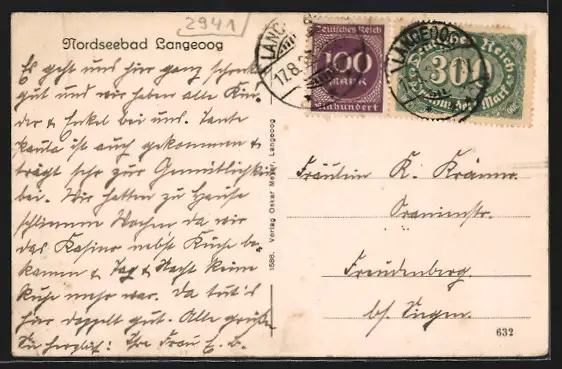 2941
Nordseebad Langeoog
Es geht uns hier ganz schreck
gut und wir haben alle Kin-
der & Enkel bei uns. Tante
Paula ist auch gekommen &
trägt sehr zur Gemütlichkeit
bei. Wir hatten zu Hause
schlimme Wochen da wir
das Kasino nebst Küche be-
kamen & Tag & Nacht keine
Ruhe mehr war. Da tut's
hier doppelt gut. Alle grüßen
Sie herzlich! Ihre Frau E. B.
1586. Verlag Oskar Meyer, Langeoog
LANGEOOG
17.8.
Deutsches Reich
100
MARK
LANGEOOG
Deutsches Reich
300
Mark
Fräulein K. Krämer
Oranienstr.
Freudenberg
b/ Siegen
632